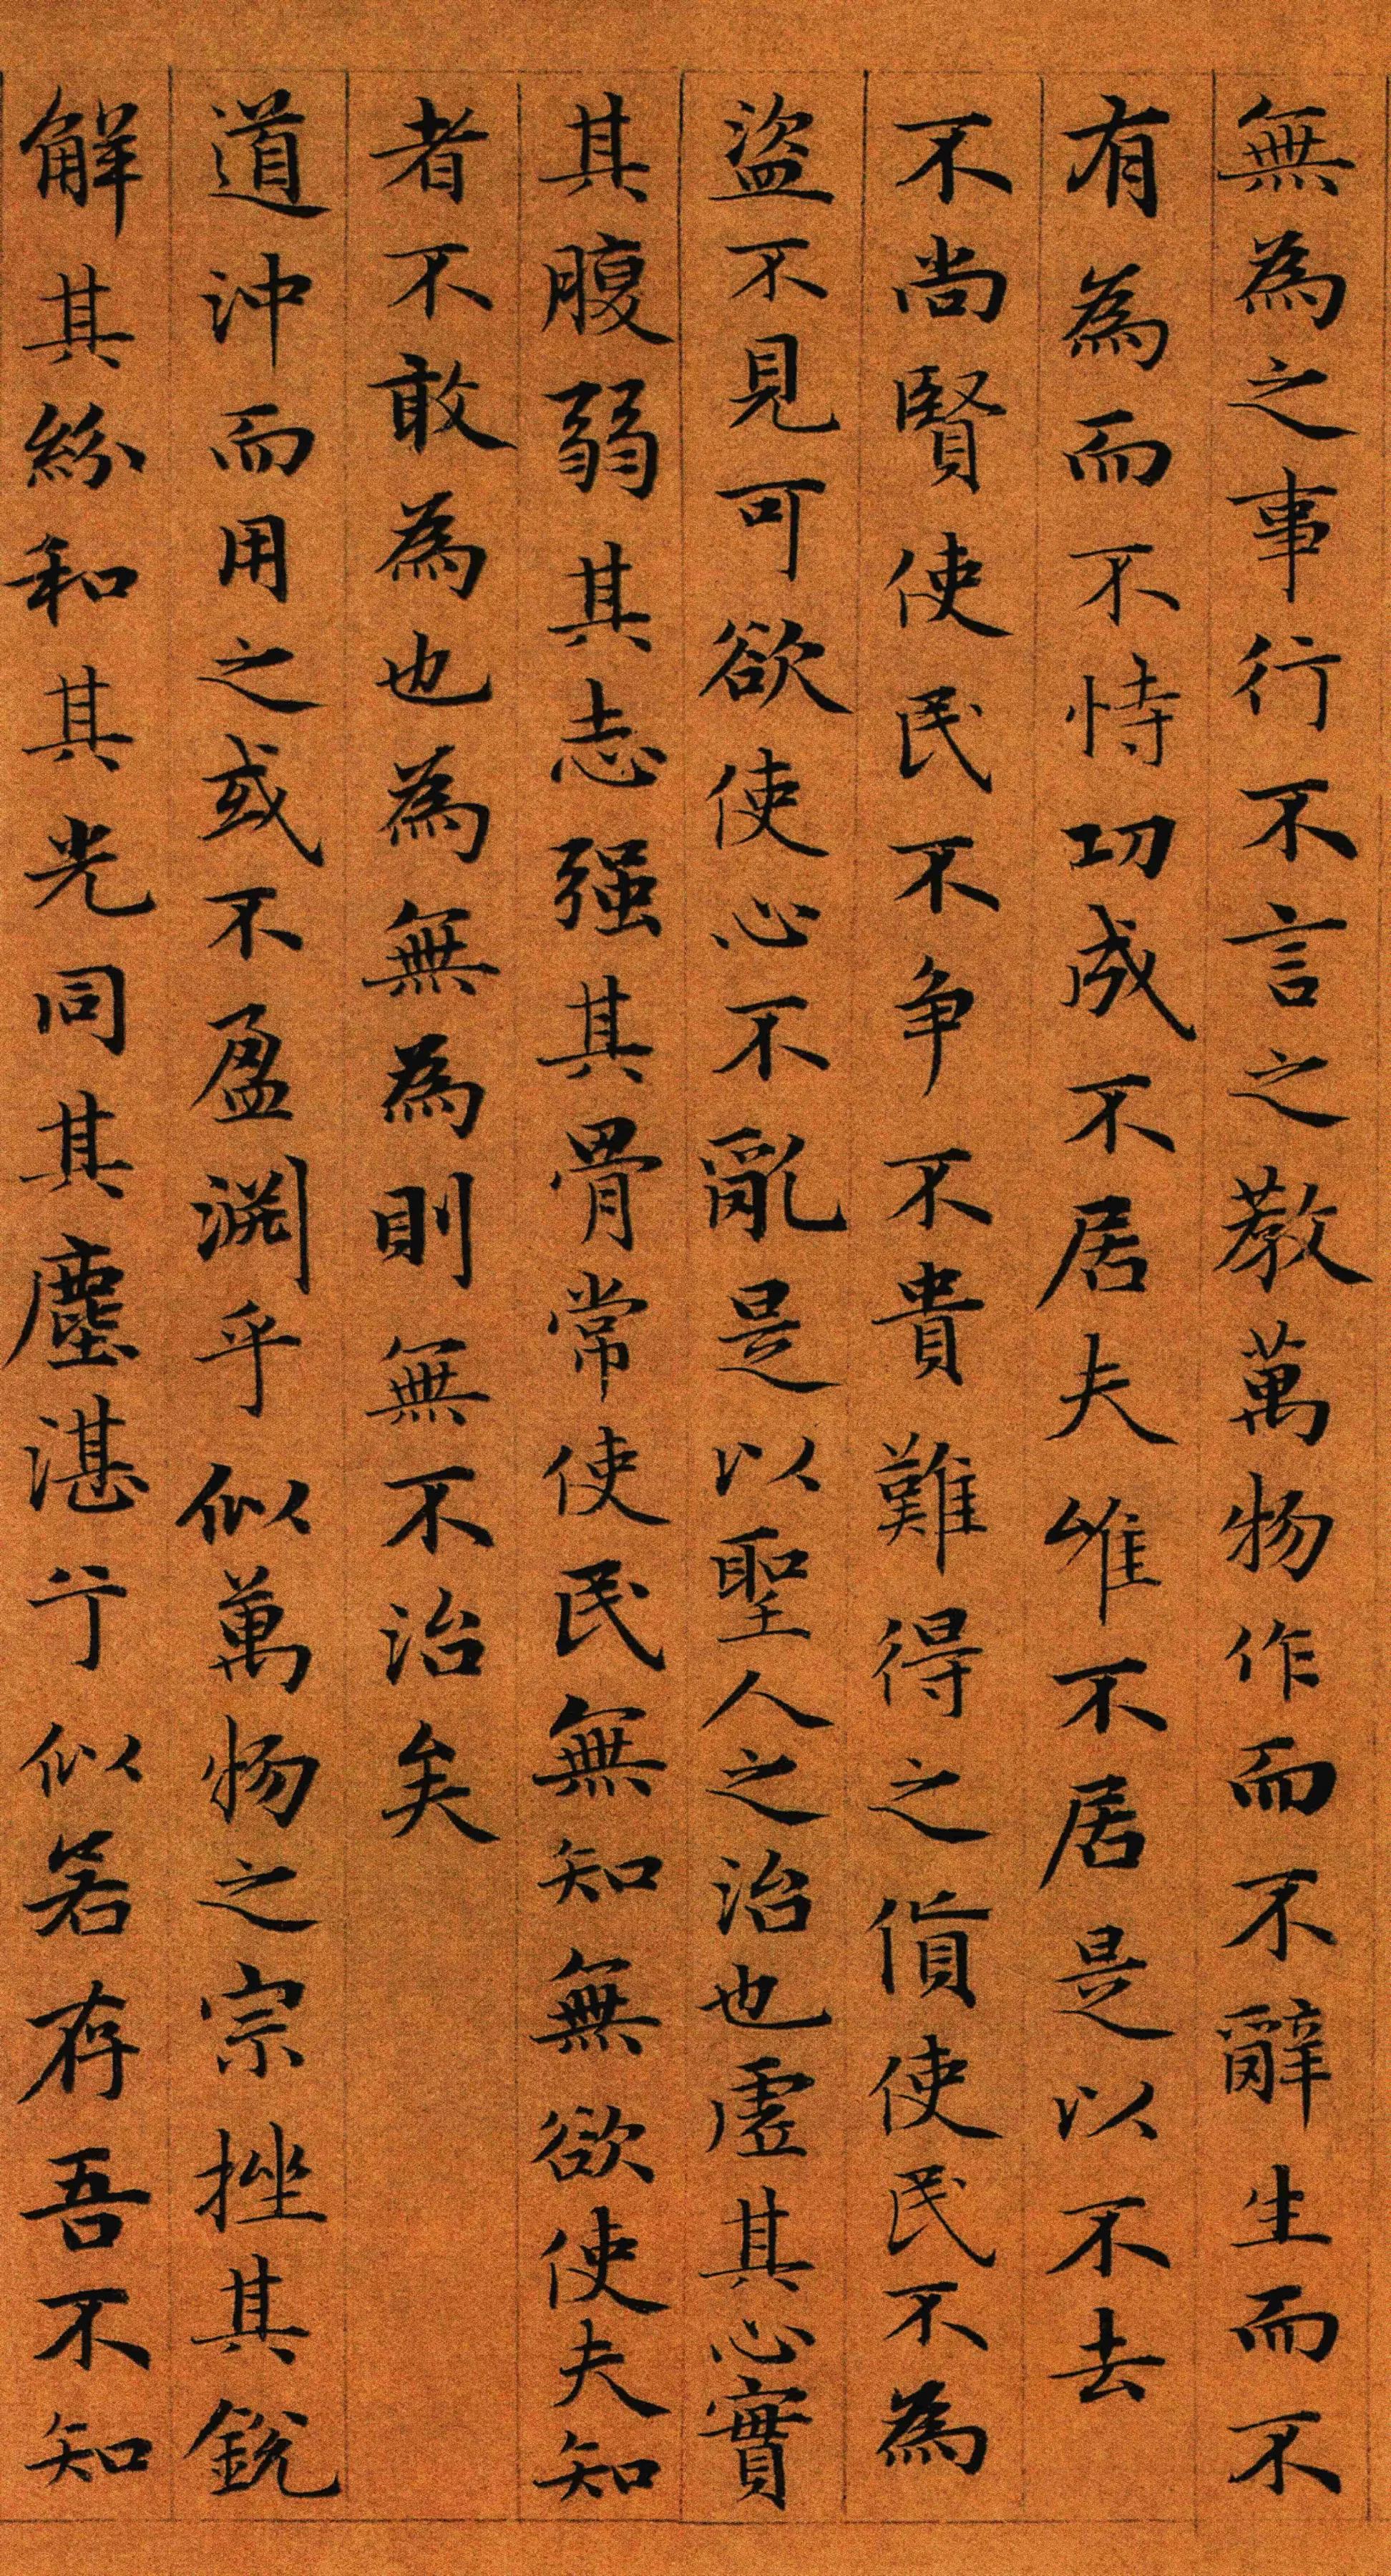 無為之事行不言之教萬物作而不辭生而不
有為而不恃功成不居夫唯不居是以不去
不尚賢使民不爭不貴難得之貨使民不為
盜不見可欲使心不亂是以聖人之治也虛其心實
其腹弱其志强其骨常使民無知無欲使夫知
者不敢為也為無為則無不治矣
道沖而用之或不盈淵乎似萬物之宗挫其銳
解其紛和其光同其塵湛兮似若存吾不知